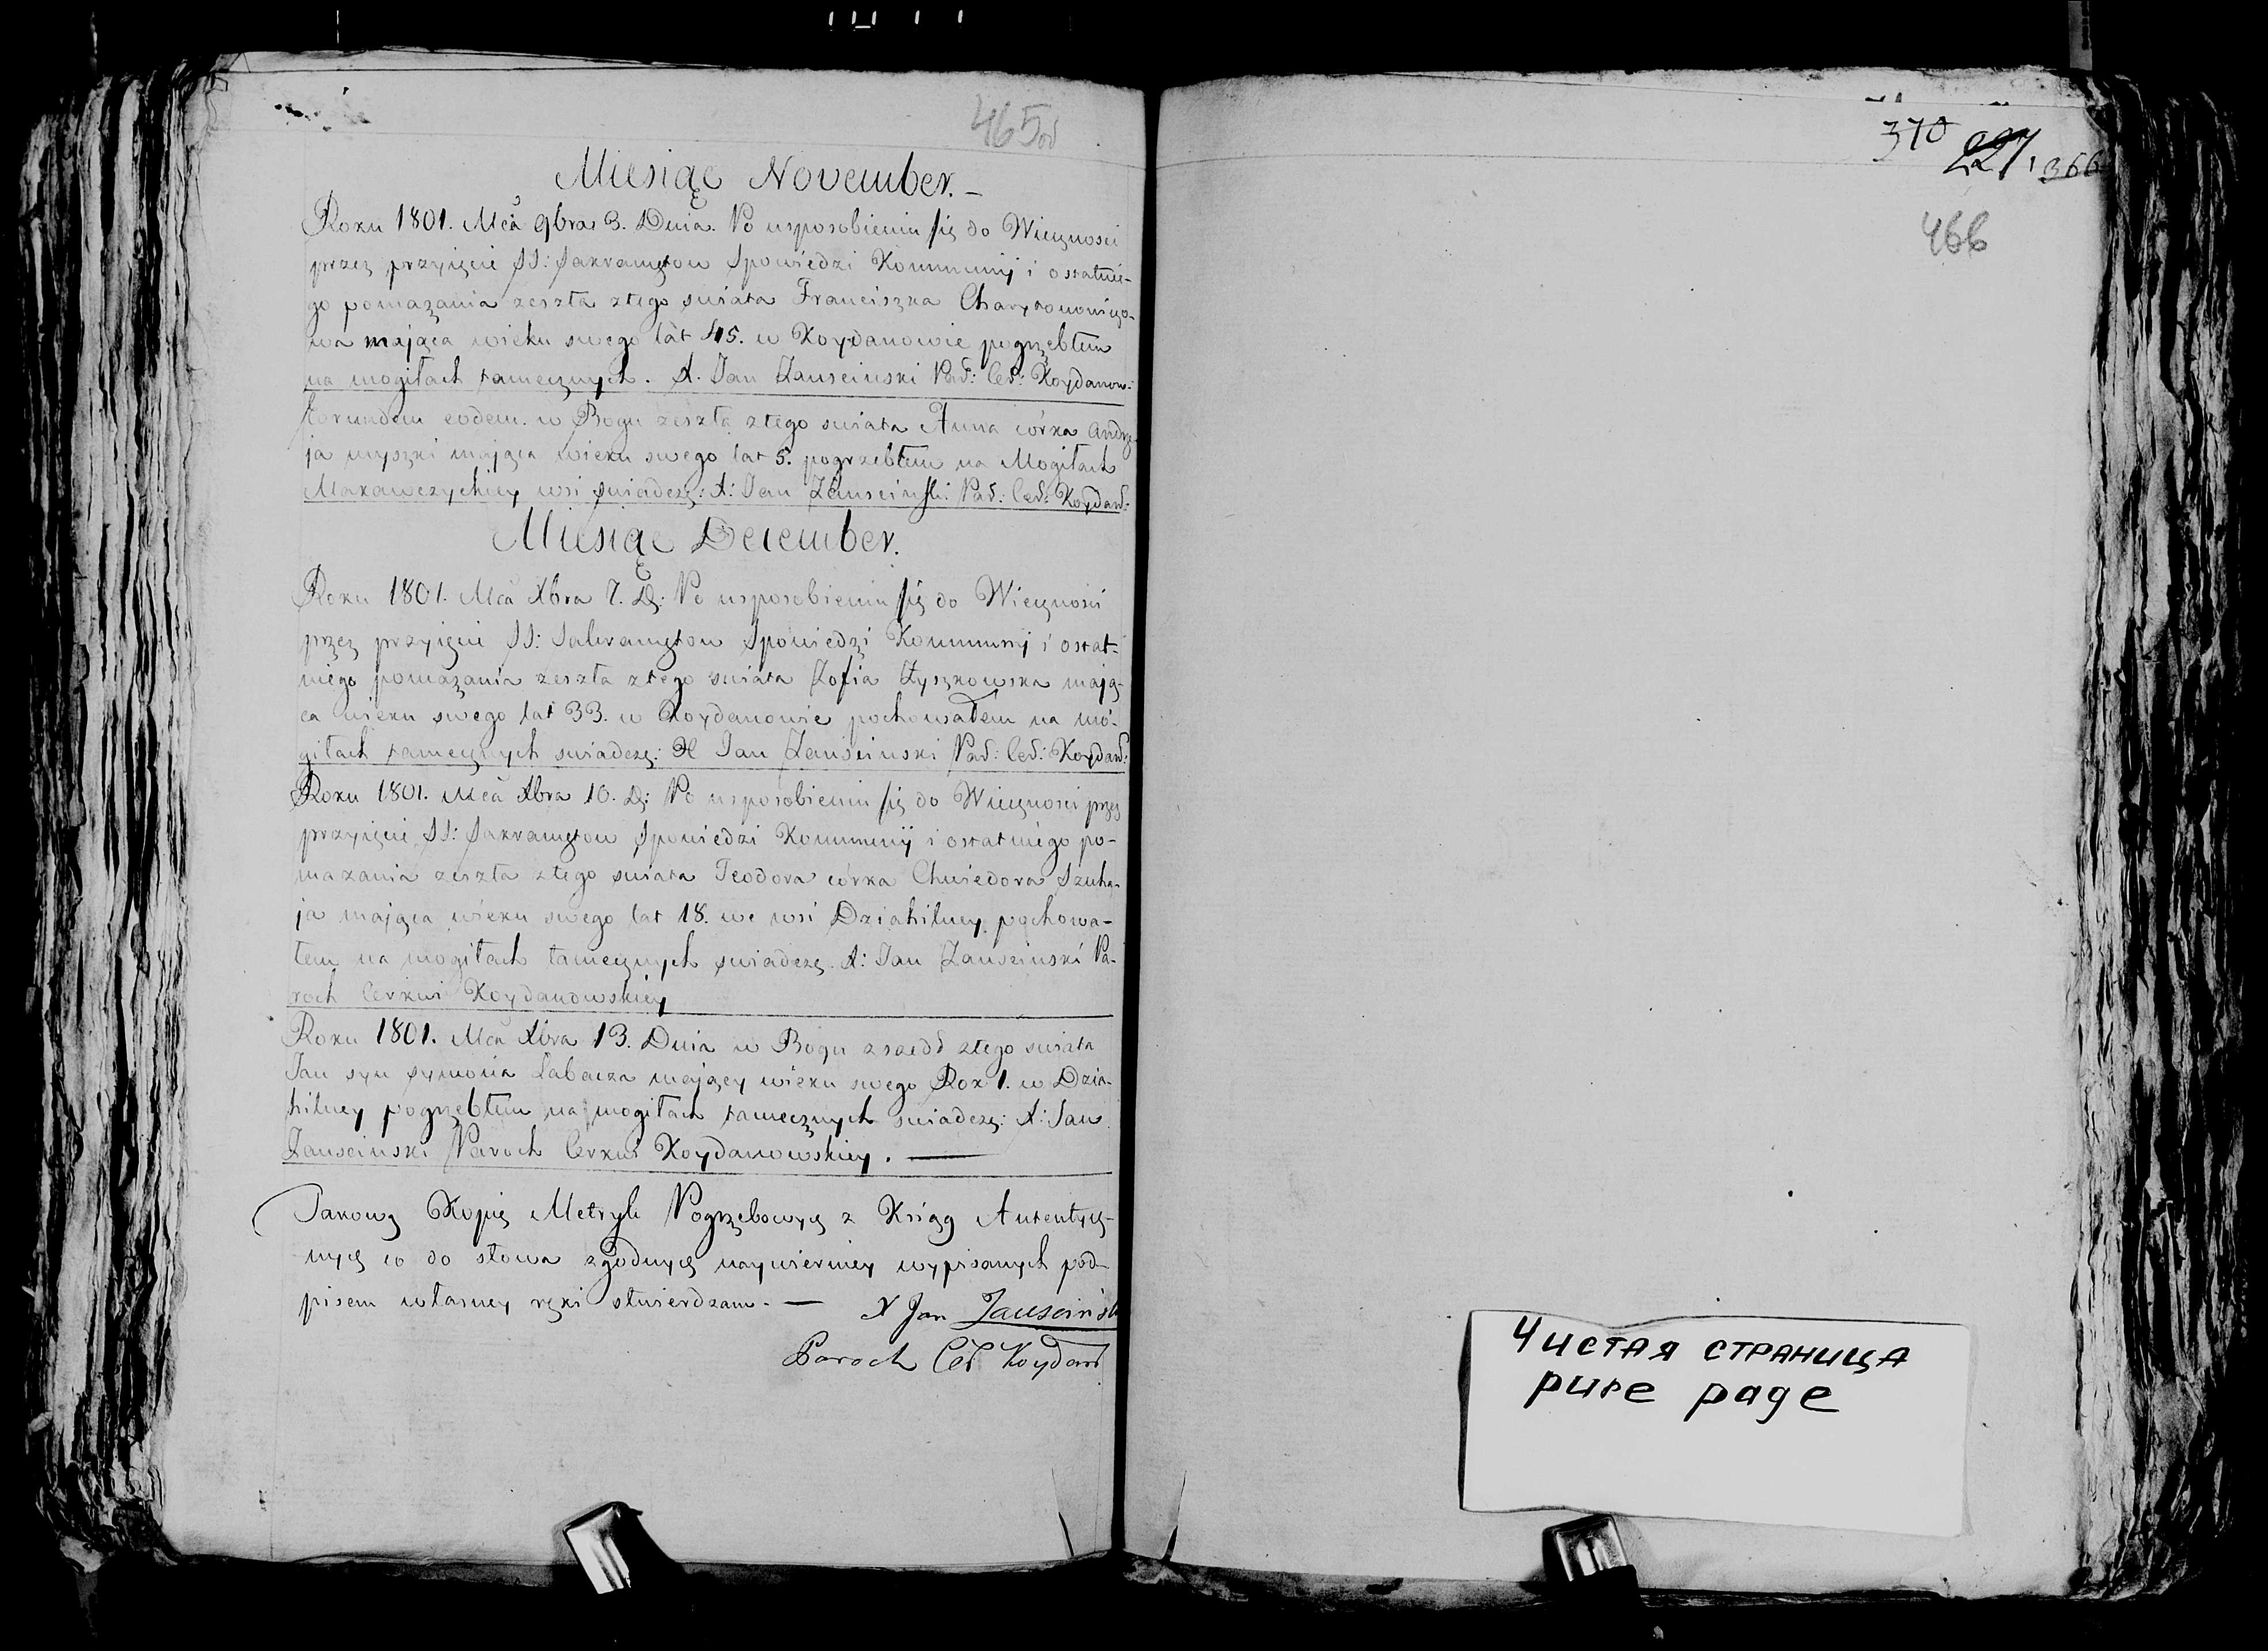 465об
Miesiąc November. —
Roku 1801. Mca 9bra 3. Dnia. Po usposobieniu się do Wiecznosci
przez przyięcie SS: Sakramętow Spowiedzi Kommunij i ostatnie-
go pomazania zeszła ztego swiata Franciszka Charytonowiczo-
wa mająca wieku swego lat 45. w Koydanowie pogrzebłem
na mogiłach tamecznych. X. Jan Zausciński Par: Cer: Koydanow:
eodem. w Bogu zeszła ztego swiata Anna córka Andrze-
ja myszki mająca wieku swego lat 5. pogrzebłem na Mogiłach
wsi swiadczę: X: Jan Zausciński Par: Cer: Koydan:
Miesiąc December.
Roku 1801. Mca Xbra 7. D: Po usposobieniu się do Wiecznosci
przez przyięcie SS: Sakramętow Spowiedzi Kommunij i ostat-
niego pomazania zeszła ztego swiata Zofia Łyszkowska mają-
ca wieku swego lat 33. w Koydanowie pochowałem na mo-
giłach tamecznych swiadczę: X Jan Zausciński Par: Cer: Koydan:
Roku 1801. Mca Xbra 10. D: Po usposobieniu się do Wiecznosci przez
przyięcie SS: Sakramętow Spowiedzi Kommunij i ostatniego po-
mazania zeszła ztego swiata Teodora córka Chwiedora Szuha-
ja mająca wieku swego lat 18. we wsi Dziahilney pochowa-
łem na mogiłach tamecznych swiadczę. X: Jan Zausciński Pa-
roch Cerkwi Koydanowskiey
Roku 1801. Mca Xbra 13. Dnia w Bogu zszedł ztego swiata
Jan syn Symona Labacza mający wieku swego Rok 1. w Dzia-
hilney pogrzebłem na mogiłach tamecznych swiadczę: X: Jan
Zausciński Paroch Cerkwi Koydanowskiey. —
Takową Kopię Metryk Pogrzebowych z Ksiąg Autentycz-
nych co do słowa zgodnych naywierniey wypisanych pod-
pisem własney ręki stwierdzam. — X Jan Zausciński
Paroch Cer Koydan
370
221, 366
466
Чистая страница
pure page